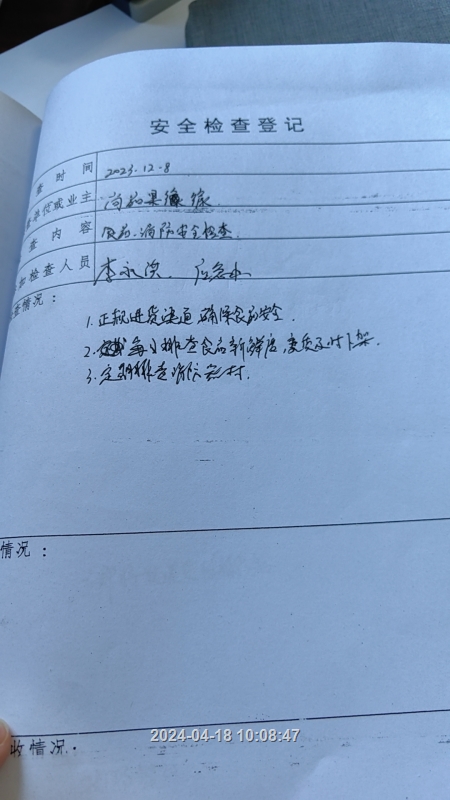 安全检查登记
查时间 2023.12.8
单位或业主
查内容 食品、消防安全检查
检查人员 李永
查情况：
1.正规进货渠道，确保食品安全.
2.每日排查食品新鲜度，变质及时下架.
3.定期排查消防器材.
情况：
收情况：
2024-04-18 10:08:47